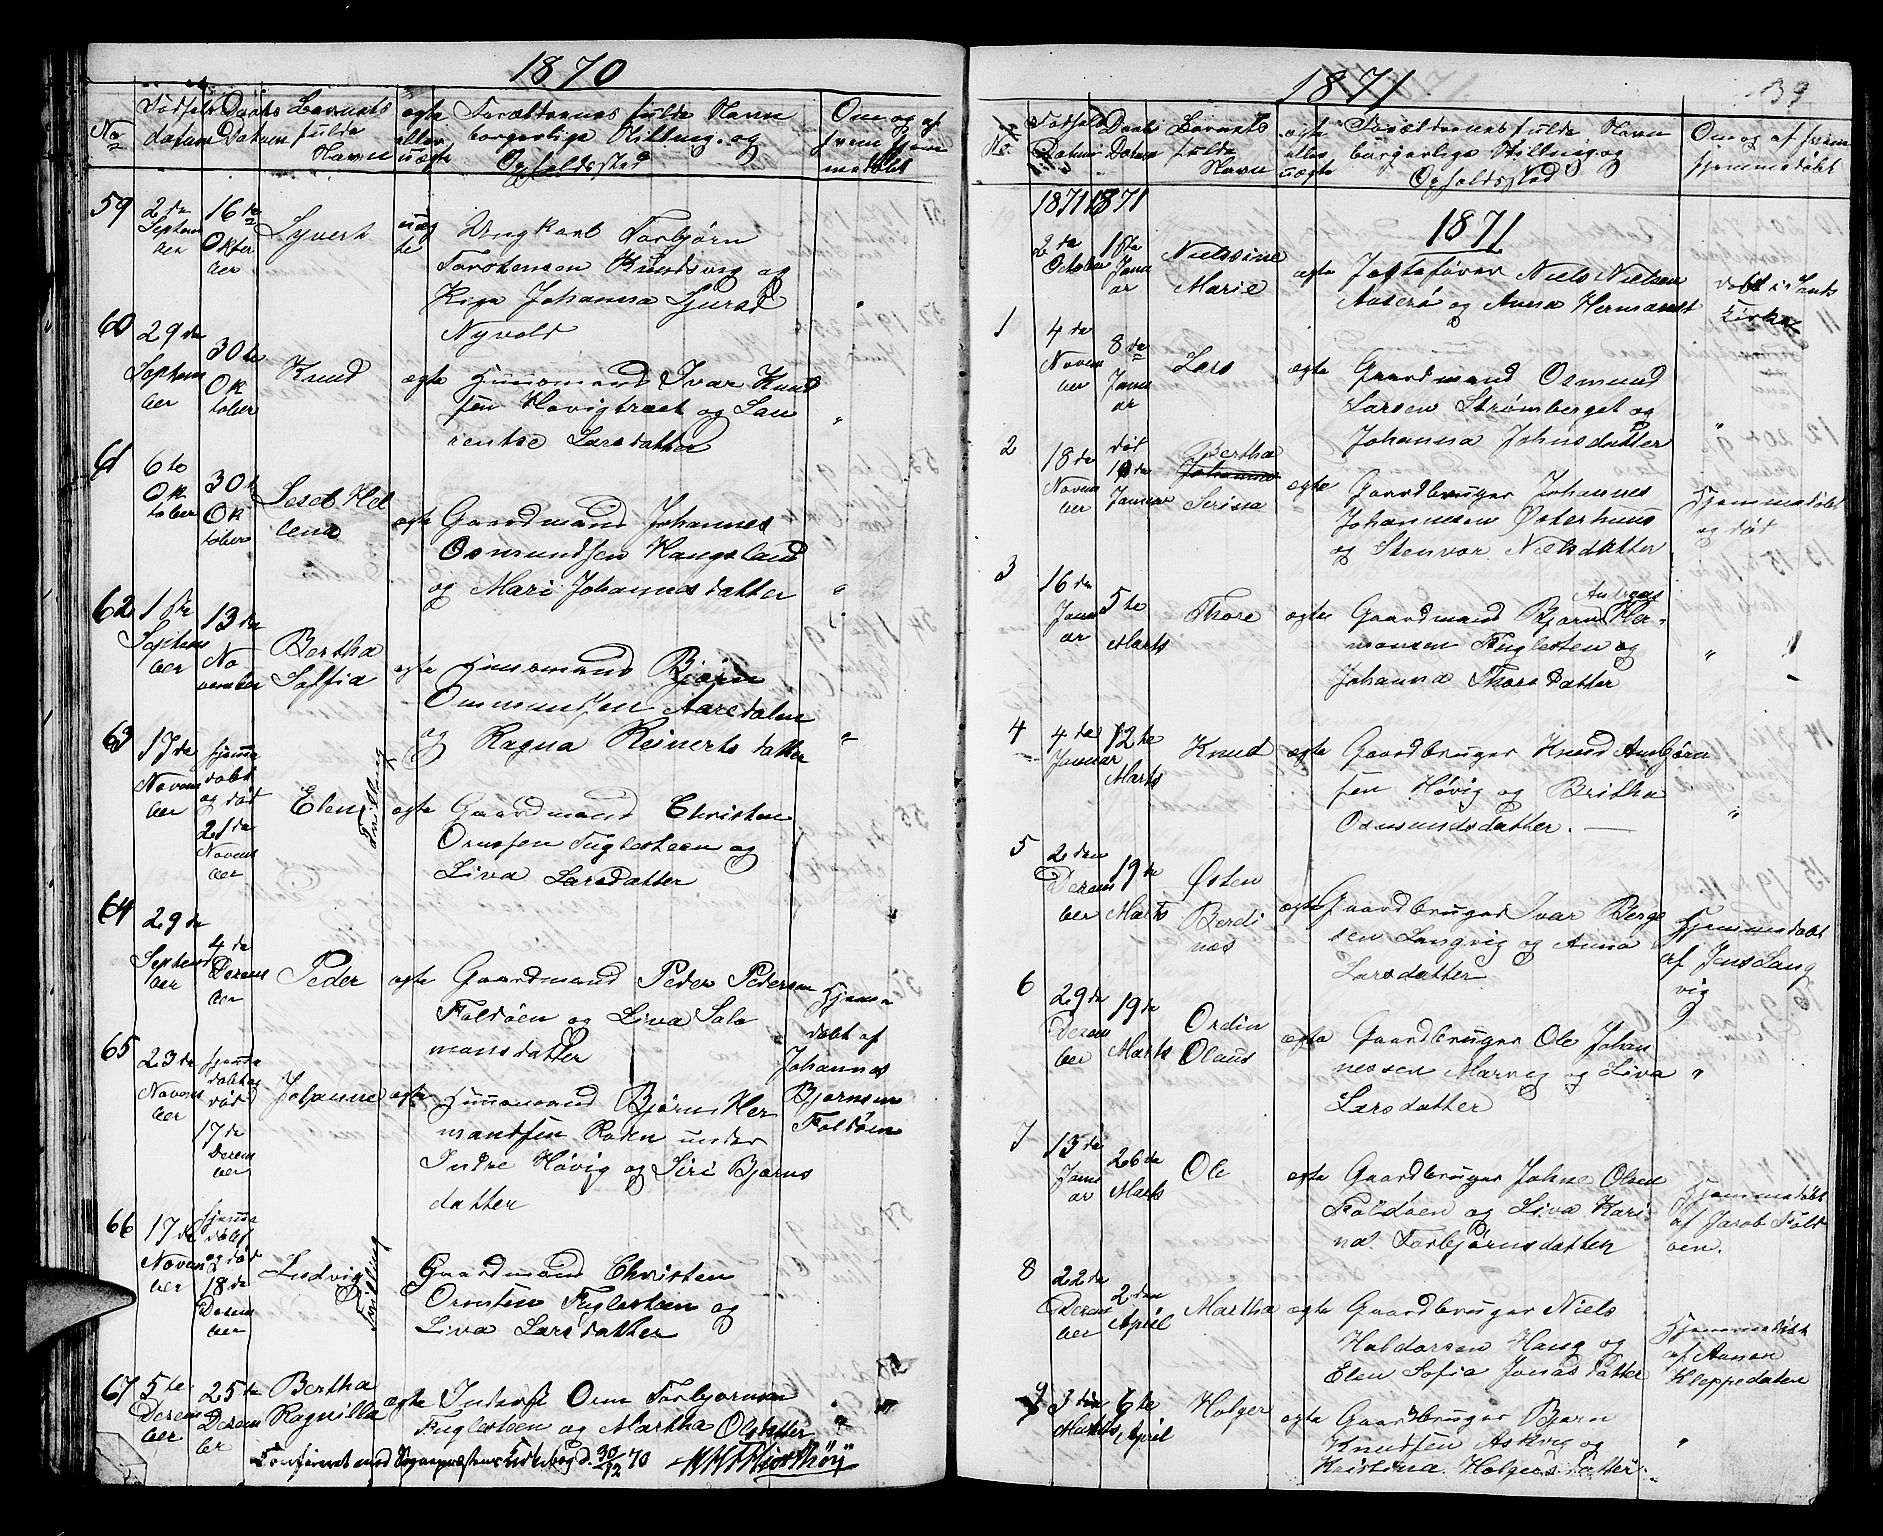 1870
No
Fødsels datum
Daabs Datum
Barnets fulde Navn
ægte eller uægte
Forældrenes fulde Navn
borgerlige Stilling og
Opholdssted
Om og af
hvem hjem
medøbt
59
2de Septem ber
16de Okto ber
Syvert
uæg te
Ungkarl Torbjørn
Torstensen Knudsvig og
Pige Johanna Sjursd
Nyvold
60
29de Septem ber
30te Ok tober
Knud
ægte
Huusmand Ivar Knud
sen Høvigtræet og Lau
rentse Larsdatter
"
61
6te Ok tober
30te Ok tober
Leset Hel
lena
ægte
Gaardmand Johannes
Osmundsen Haugsland
og Mari Johannesdatter
"
62
1ste Septem ber
13de No vember
Bertha
Soffia
ægte
Huusmand Bjørn
Ommundsen Aaredalen
og Ragna Reinertsdatter
"
63
17de Novem ber
hjemme døbt og død 21de Novem ber
Elen
Tvilling
ægte
Gaardmand Christen
Ormsen Fuglesteen og
Liva Larsdatter
64
29de Septem ber
4de Decem ber
Peder
ægte
Gaardmand Peder Pedersen
Foldøen og Liva Salo
monsdatter
Hjemme
døbt af
Johannes
Bjørnsen
Foldøen
65
23de Novem ber
hjemme døbt og død 17de Decem ber
Johanne
ægte
Huusmand Bjørn Her
mandsen Roden under
Indre Høvig og Siri Bjørns
datter
66
17de Novem ber
hjemme døbt og død 18de Decem ber
Ludvig
Tvilling
Gaardmand Christen
Ormsen Fuglesteen og
Liva Larsdatter
67
5te Decem ber
25de Decem ber
Bertha
Ragnilla
ægte
Inderst Orm Torbjørnsen
Fuglesteen og Martha Olsdatter
"
Konfereret med Sognepræstens Kirkebog d. 30/12 70
1871
39
No.
Fødsels Datum
Daabs Datum
Barnets fulde Navn
ægte eller uægte
Forældrenes fulde Navn
borgerlige Stilling og
Opholdssted
Om og af hvem
hjemmedøbt
1871 1871
1871
2de October
18de Janu ar
Nielsine
Marie
ægte
Jægtefører Niels Nielsen
Aaserø og Anna Hermansdt
døbt i Sands
Kirke
1
4de Novem ber
8de Janu ar
Lars
ægte
Gaardmand Osmund
Larsen Strømberget og
Johanna Johnsdatter
"
2
18de Novem ber
død 10de Januar
Bertha
Johanna
Serina
ægte
Gaardbruger Johannes
Johannesen Østerhuus
og Stenvor Nielsdatter
Hjemmedøbt
og død
3
16de Janu ar
5te Marts
Thore
ægte
Gaardmand Bjørn Her
mansen Fuglesten og
Johanna Thorsdatter
"
4
4de Januar
12te Marts
Knud
ægte
Gaardbruger Knud Asbjørn
sen Høvig og Britha
Osmundsdatter.
"
5
2den Decem ber
19de Marts
Østen
Berdi
nes
ægte
Gaardbruger Ivar Berge
sen Langvig og Anna
Larsdatter
Hjemmedøbt
af Jens Lang
vig
6
29de Decem ber
19de Marts
Ordin
Olaus
ægte
Gaardbruger Ole Johan
nessen Marvig og Liva
Larsdatter
"
7
13de Janu ar
26de Marts
Ole
ægte
Gaardbruger Johne Olsen
Foldøen og Liva Kari
na. Torbjørnsdatter
Hjemmedøbt
af Jacob Fold
øen.
8
22de Decem ber
2den April
Martha
ægte
Gaardbruger Niels
Haldorsen Haug og
Elen Sofia Jonasdatter
Hjemmedøbt
af Aanen
Kleppedalen
9
3die Marts
6te April
Holger
ægte
Gaardbruger Bjørn
Knudsen Askvig og
Kristina Holgersdatter
"